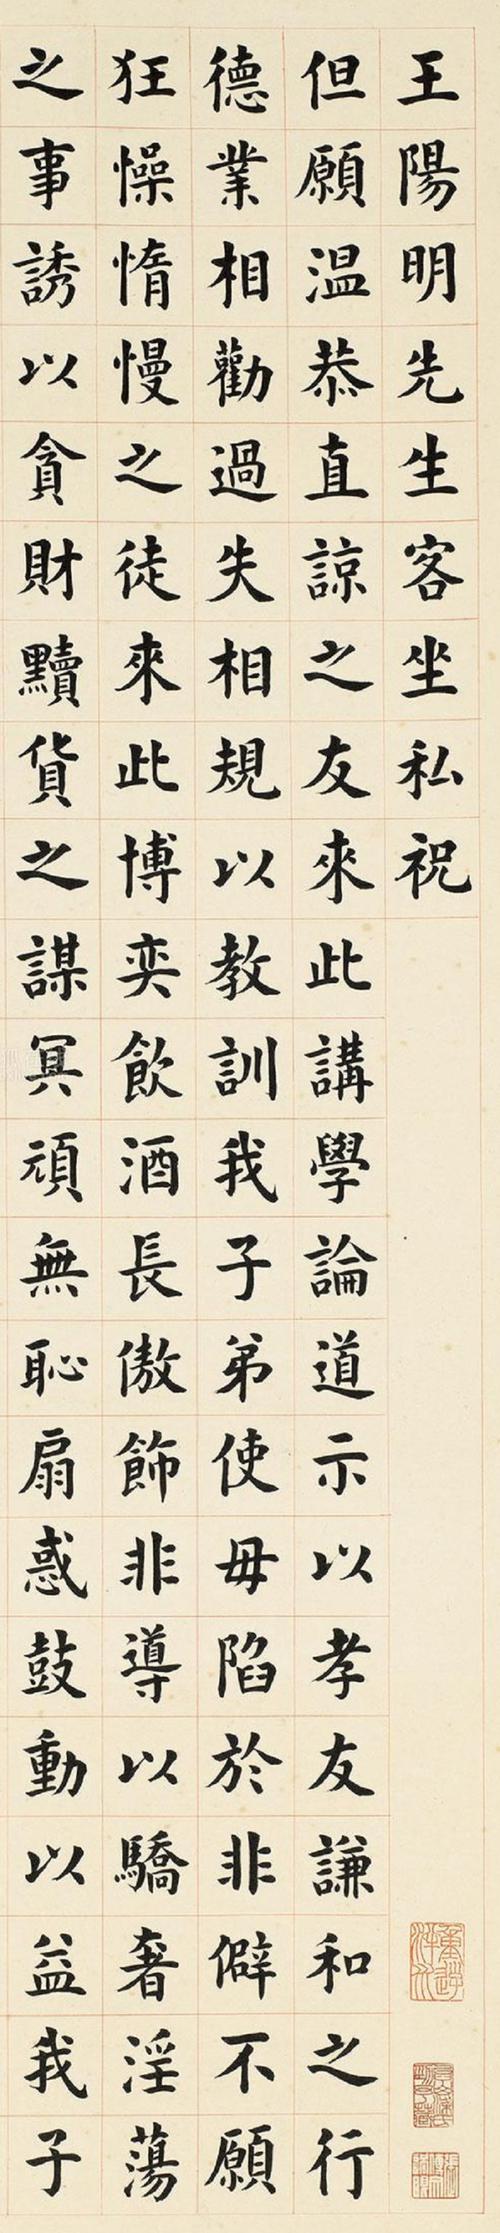 王陽明先生客坐私祝
但願温恭直諒之友來此講學論道示以孝友謙和之行
德業相勸過失相規以教訓我子弟使毋陷於非僻不願
狂懆惰慢之徒來此博奕飲酒長傲飾非導以驕奢淫蕩
之事誘以貪財黷貨之謀冥頑無恥扇惑鼓動以益我子